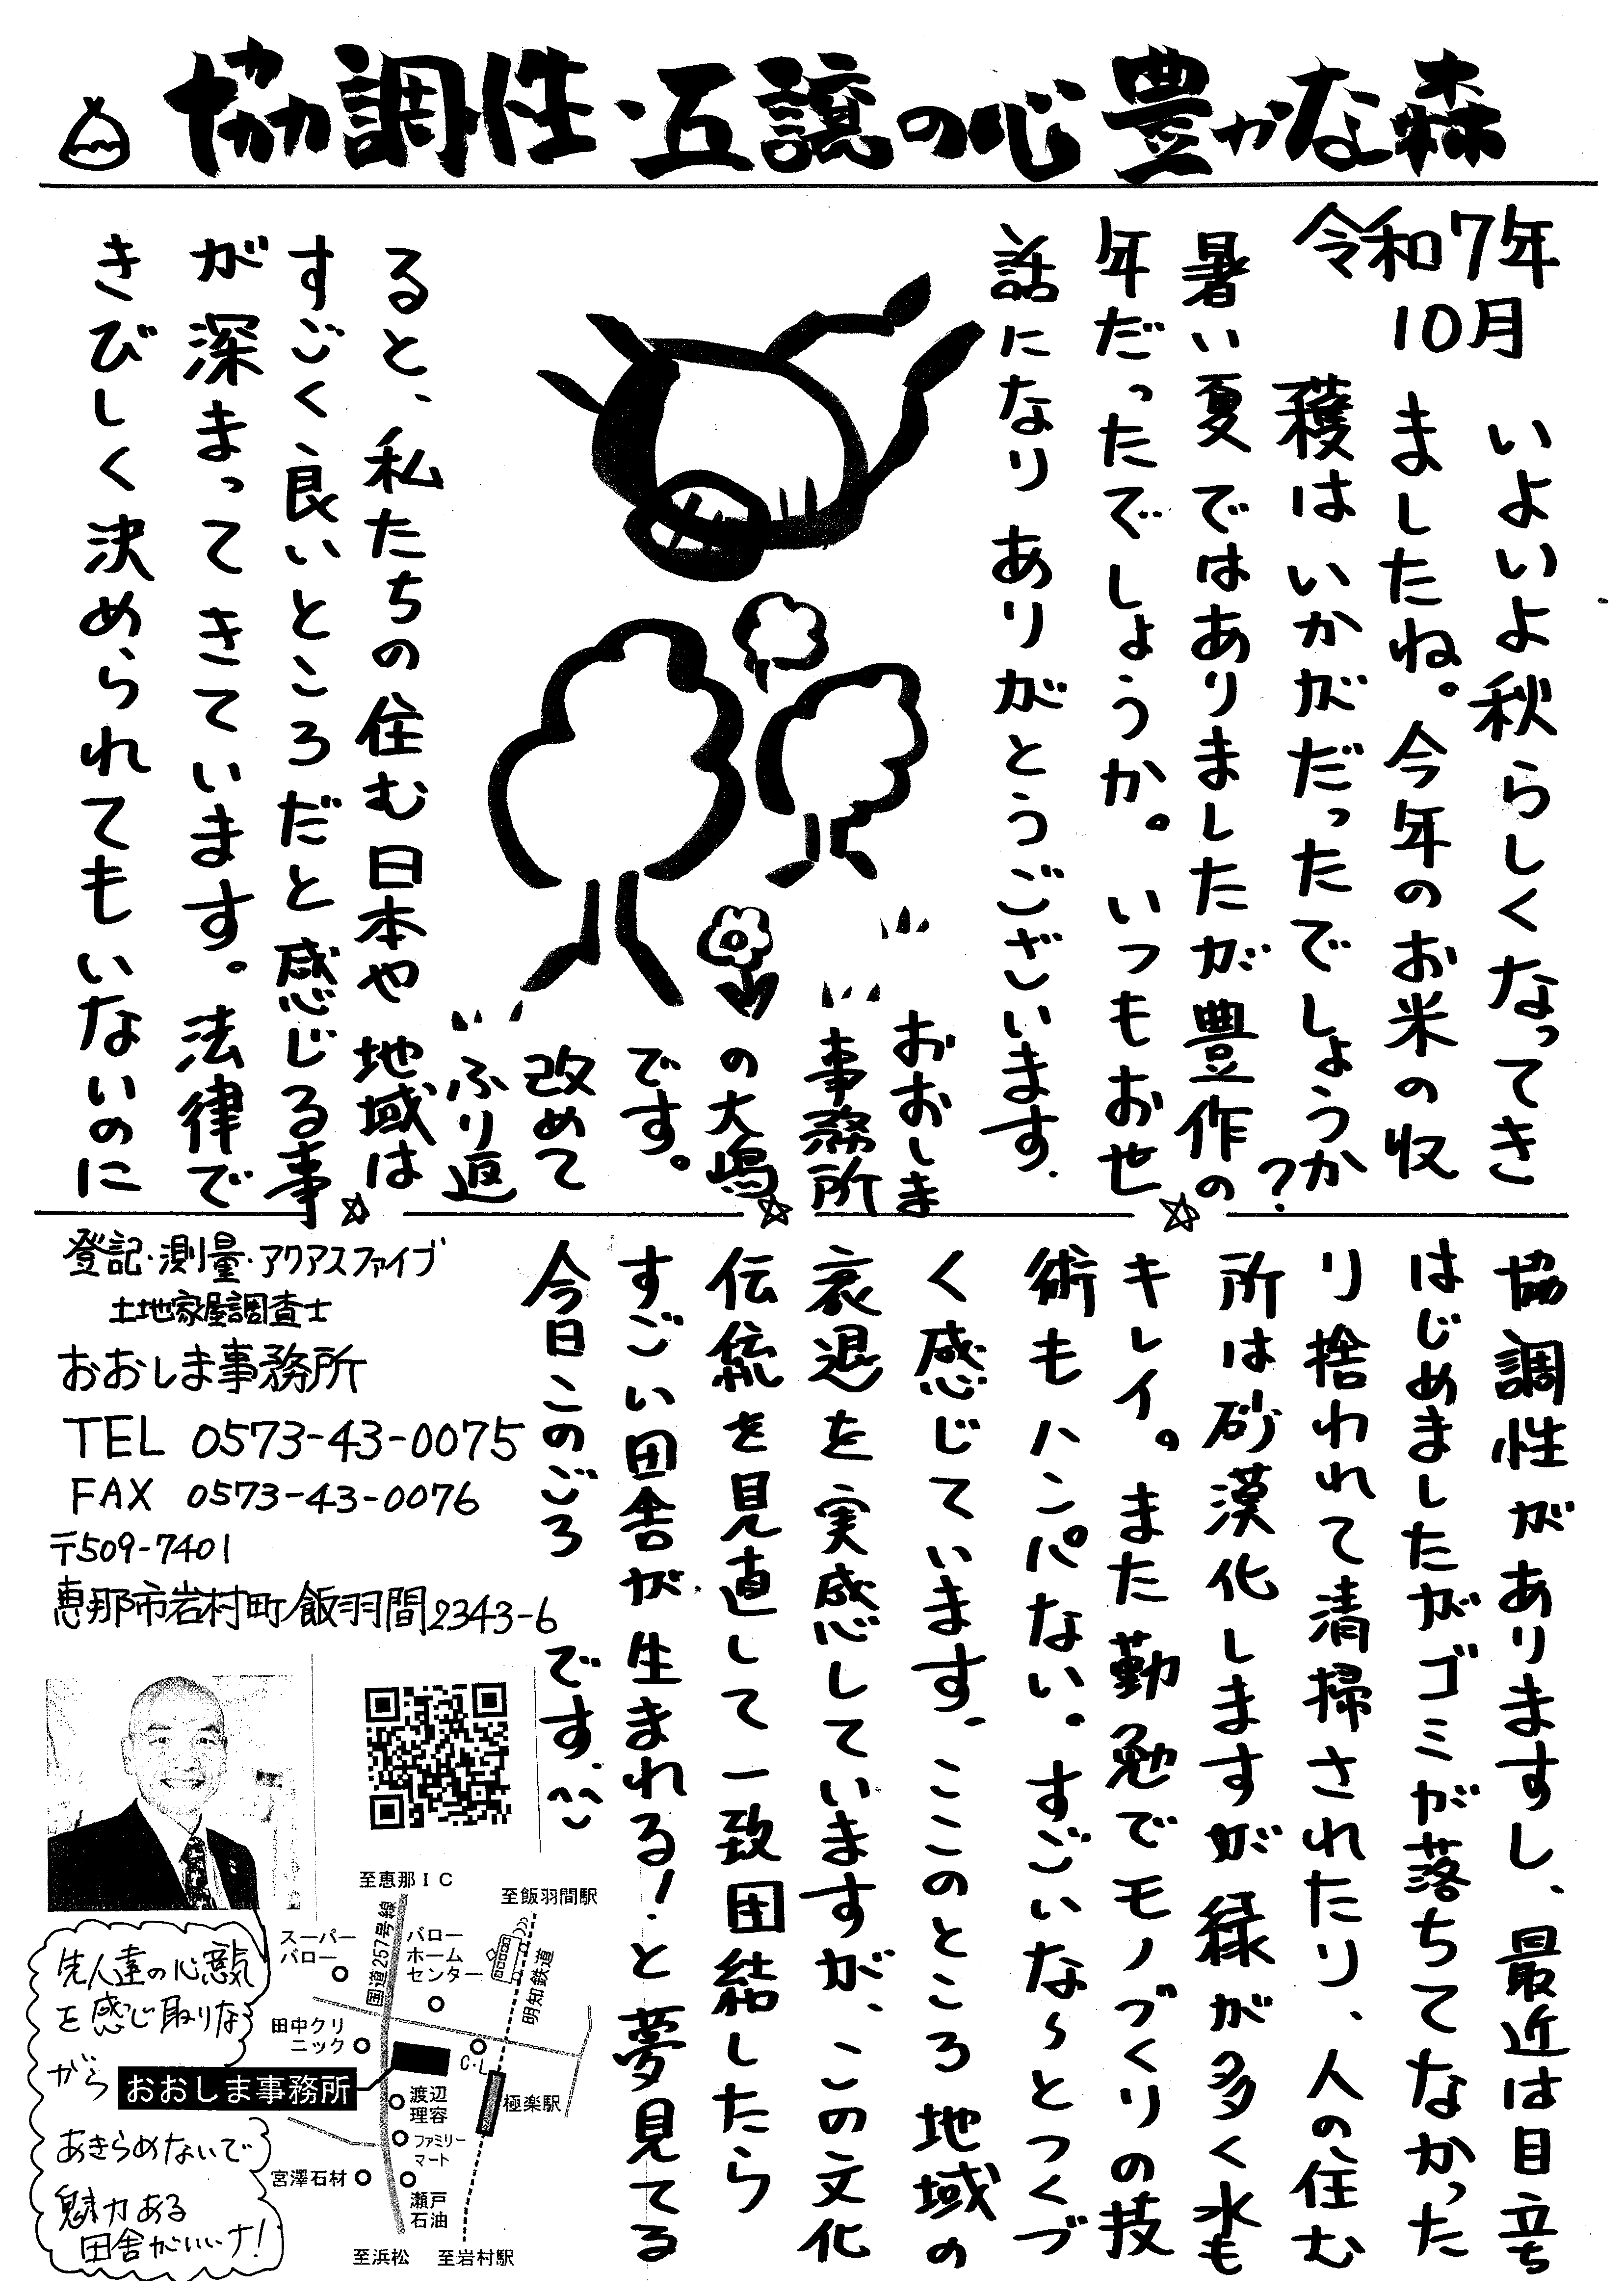 協調性・互譲の心豊かな森
令和7年
10月
いよいよ秋らしくなってき
ましたね。今年のお米の収
穫はいかがだったでしょうか?
暑い夏ではありましたが豊作の
年だったでしょうか。いつもお世
話になりありがとうございます.
おおしま
事務所
の大嶋
です。
改めて
ふり返
ると、私たちの住む日本や地域は
すごく良いところだと感じる事
が深まってきています。法律で
きびしく決められてもいないのに
協調性がありますし、最近は目立ち
はじめましたがゴミが落ちてなかった
り捨われて清掃されたり、人の住む
所は砂漠化しますが緑が多く水も
キレイ。また勤勉でモノづくりの技
術もハンパない。すごいな~とつくづ
く感じています.ここのところ地域の
衰退を実感していますが、この文化
伝統を見直して一致団結したら
すごい田舎が生まれる!と夢見てる
今日このごろです.^^
登記・測量・アクアスファイブ
土地家屋調査士
おおしま事務所
TEL 0573-43-0075
FAX 0573-43-0076
〒509-7401
恵那市岩村町飯羽間2343-6
先人達の心意気
を感じ取りな
がら
あきらめないで
魅力ある
田舎がいいナ!
至恵那IC
至飯羽間駅
スーパー
バロー
国道257号線
バロー
ホーム
センター
明知鉄道
田中クリ
ニック
C・L
おおしま事務所
渡辺
理容
極楽駅
ファミリー
マート
宮澤石材
瀬戸
石油
至浜松
至岩村駅